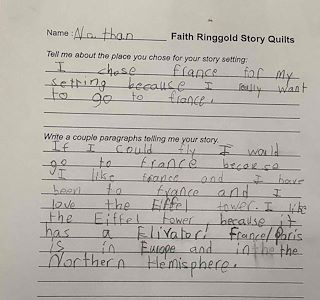 Name: Nathan Faith Ringgold Story Quilts
Tell me about the place you chose for your story setting:
I chose France for my
setting because I really want
to go to france.
Write a couple paragraphs telling me your story.
If I could fly I would
go to france becase
I like france and I have
been to france and I
love the Eiffel tower. I like
the Eiffel tower because it
has a Elivator! France/Paris
is in Europe and in the the
Northern Hemisphere.